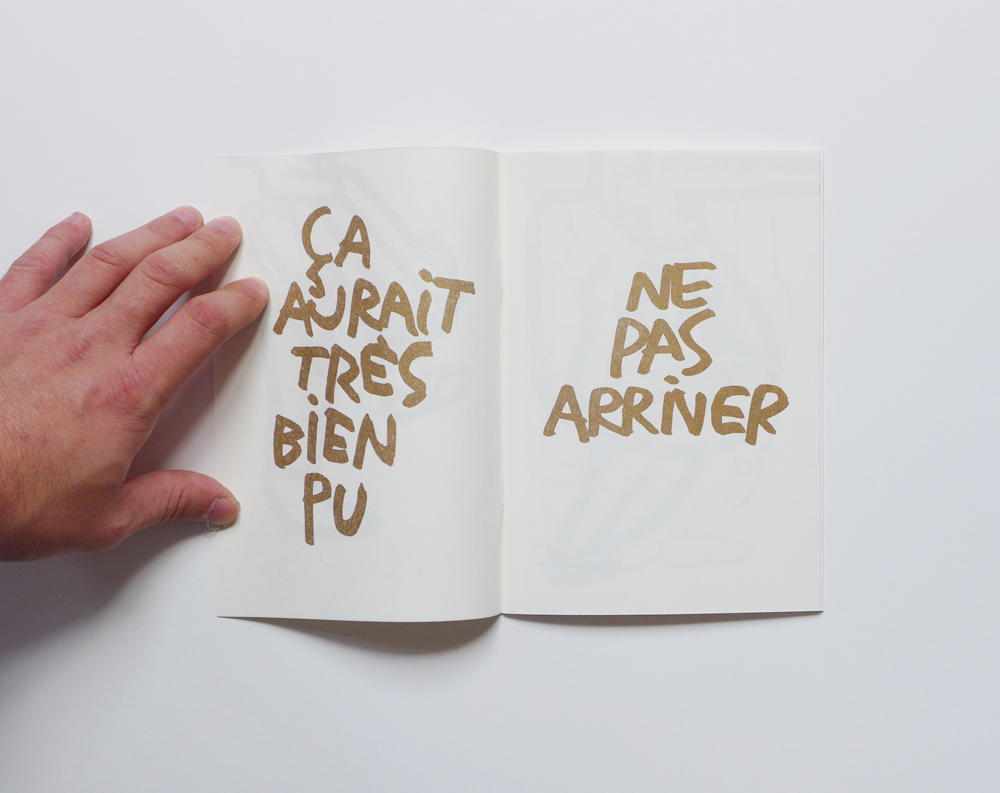 ÇA
AURAiT
TRÈS
BiEN
PU
NE
PAS
ARRiVER